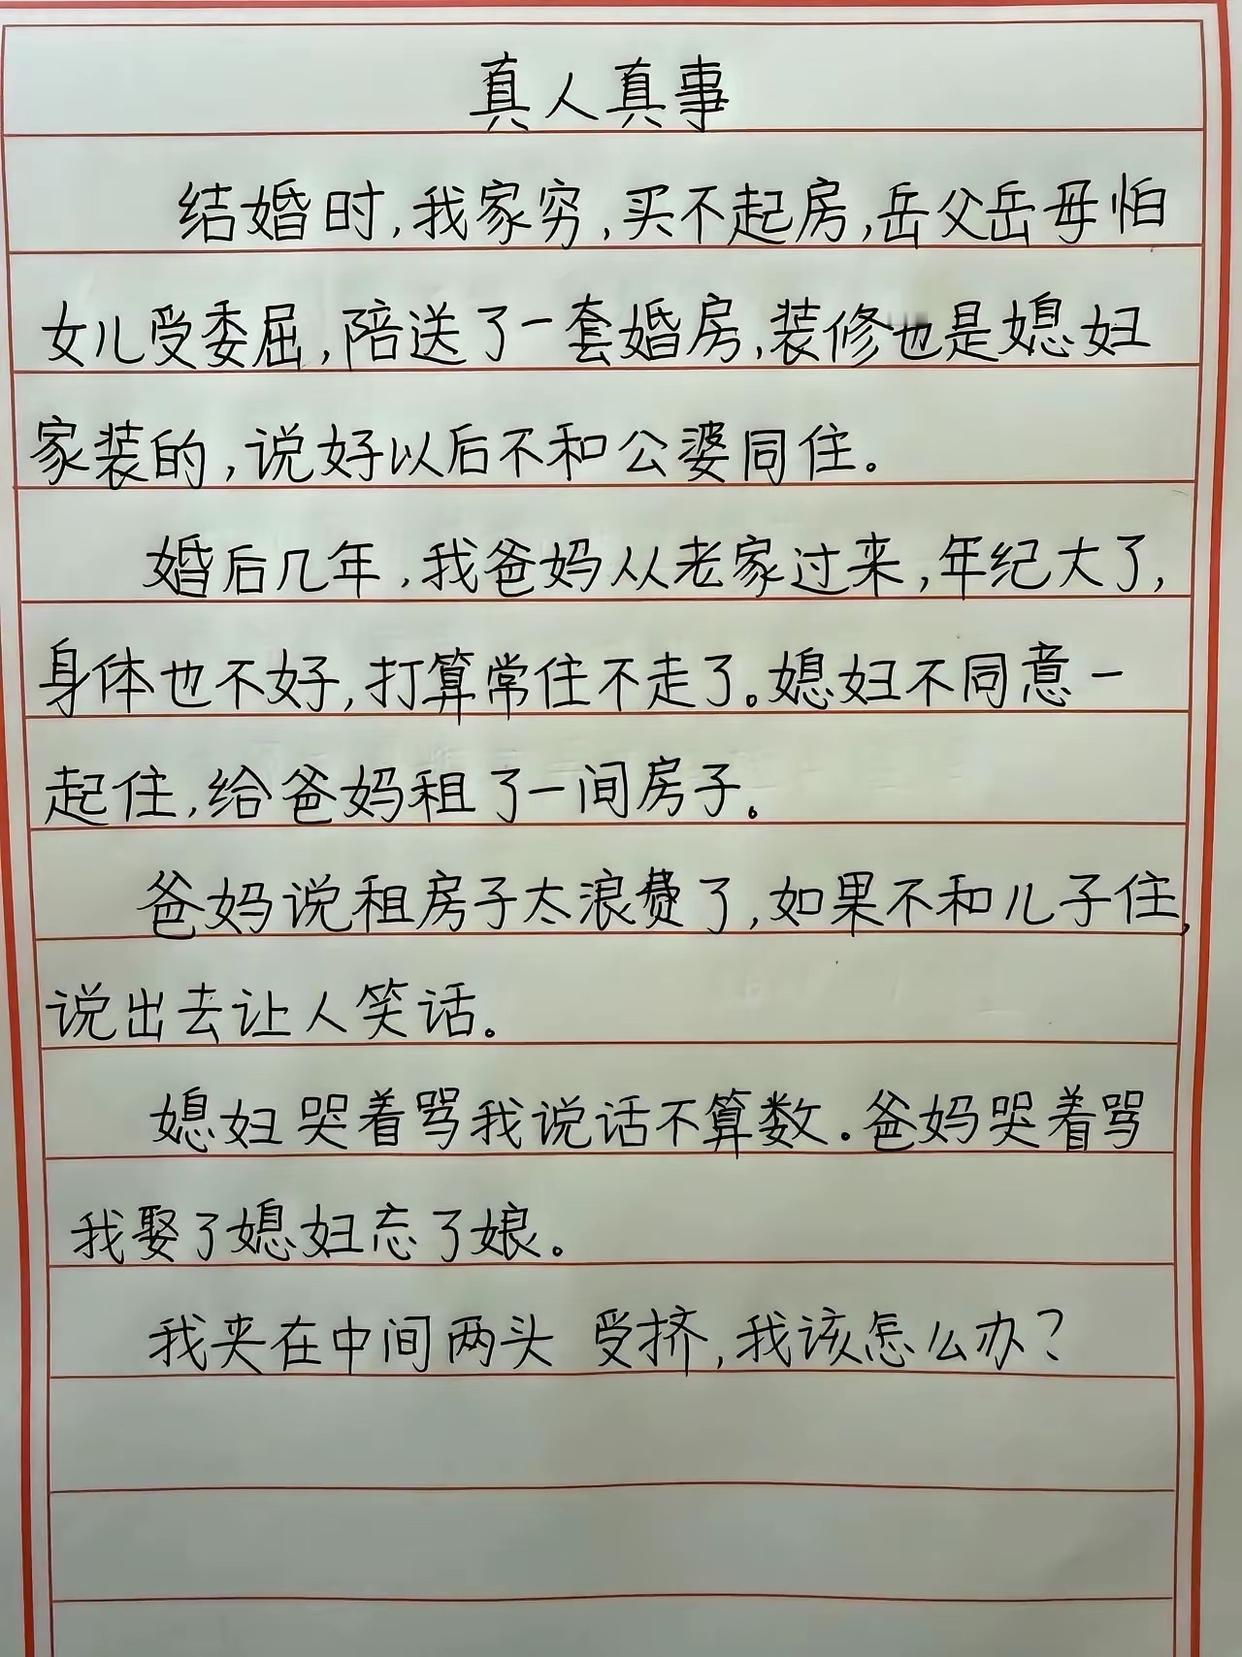 真人真事
结婚时,我家穷,买不起房,岳父岳母怕
女儿受委屈,陪送了一套婚房,装修也是媳妇
家装的,说好以后不和公婆同住。
婚后几年,我爸妈从老家过来,年纪大了,
身体也不好,打算常住不走了。媳妇不同意一
起住,给爸妈租了一间房子。
爸妈说租房子太浪费了,如果不和儿子住,
说出去让人笑话。
媳妇哭着骂我说话不算数.爸妈哭着骂
我娶了媳妇忘了娘。
我夹在中间两头 受挤,我该怎么办?